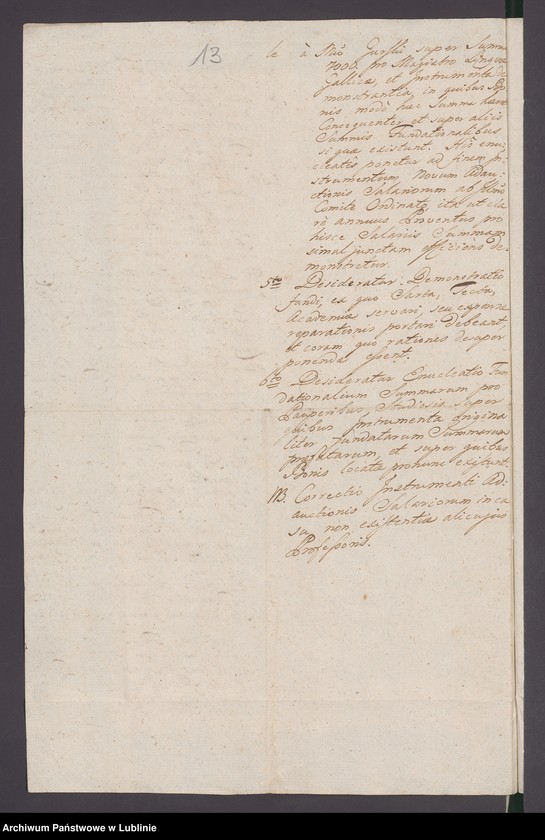 13
le à Mco Gurski super Summa
7000. pro Magistro Linguæ
Gallicæ, et Instrumenta de
monstrantia, in quibus Bo
nis modo hæc Summa hæret
Consequenter et super aliis
Summis Fundationalibus
si quæ existunt. His enu
cleatis ponetur ad finem In
strumentum Novum Adau
ctionis Salariorum ab
Comite Ordinato, ita ut cla
re annuus Proventus pro
hisce Salariis Summam
simul junctam efficiens de
monstretur.
5to Desideratur Demonstratio
fundi, ex quo Sarta, Tecta,
Academiæ servari, seu expensæ
reparationis portari debeant,
et coram quo rationes desuper
ponendæ essent.
6to Desideratur Enucleatio Fun
dationalium Summarum pro
Pauperibus Studiosis super
quibus Instrumenta origina
liter fundatarum Summarum
præfatarum, et super quibus
Bonis locatæ pronunc existunt.
NB. Correctio Instrumenti Ad
auctionis Salariorum in ca
su non existentiæ alicujus
Professoris.
Archiwum Państwowe w Lublinie